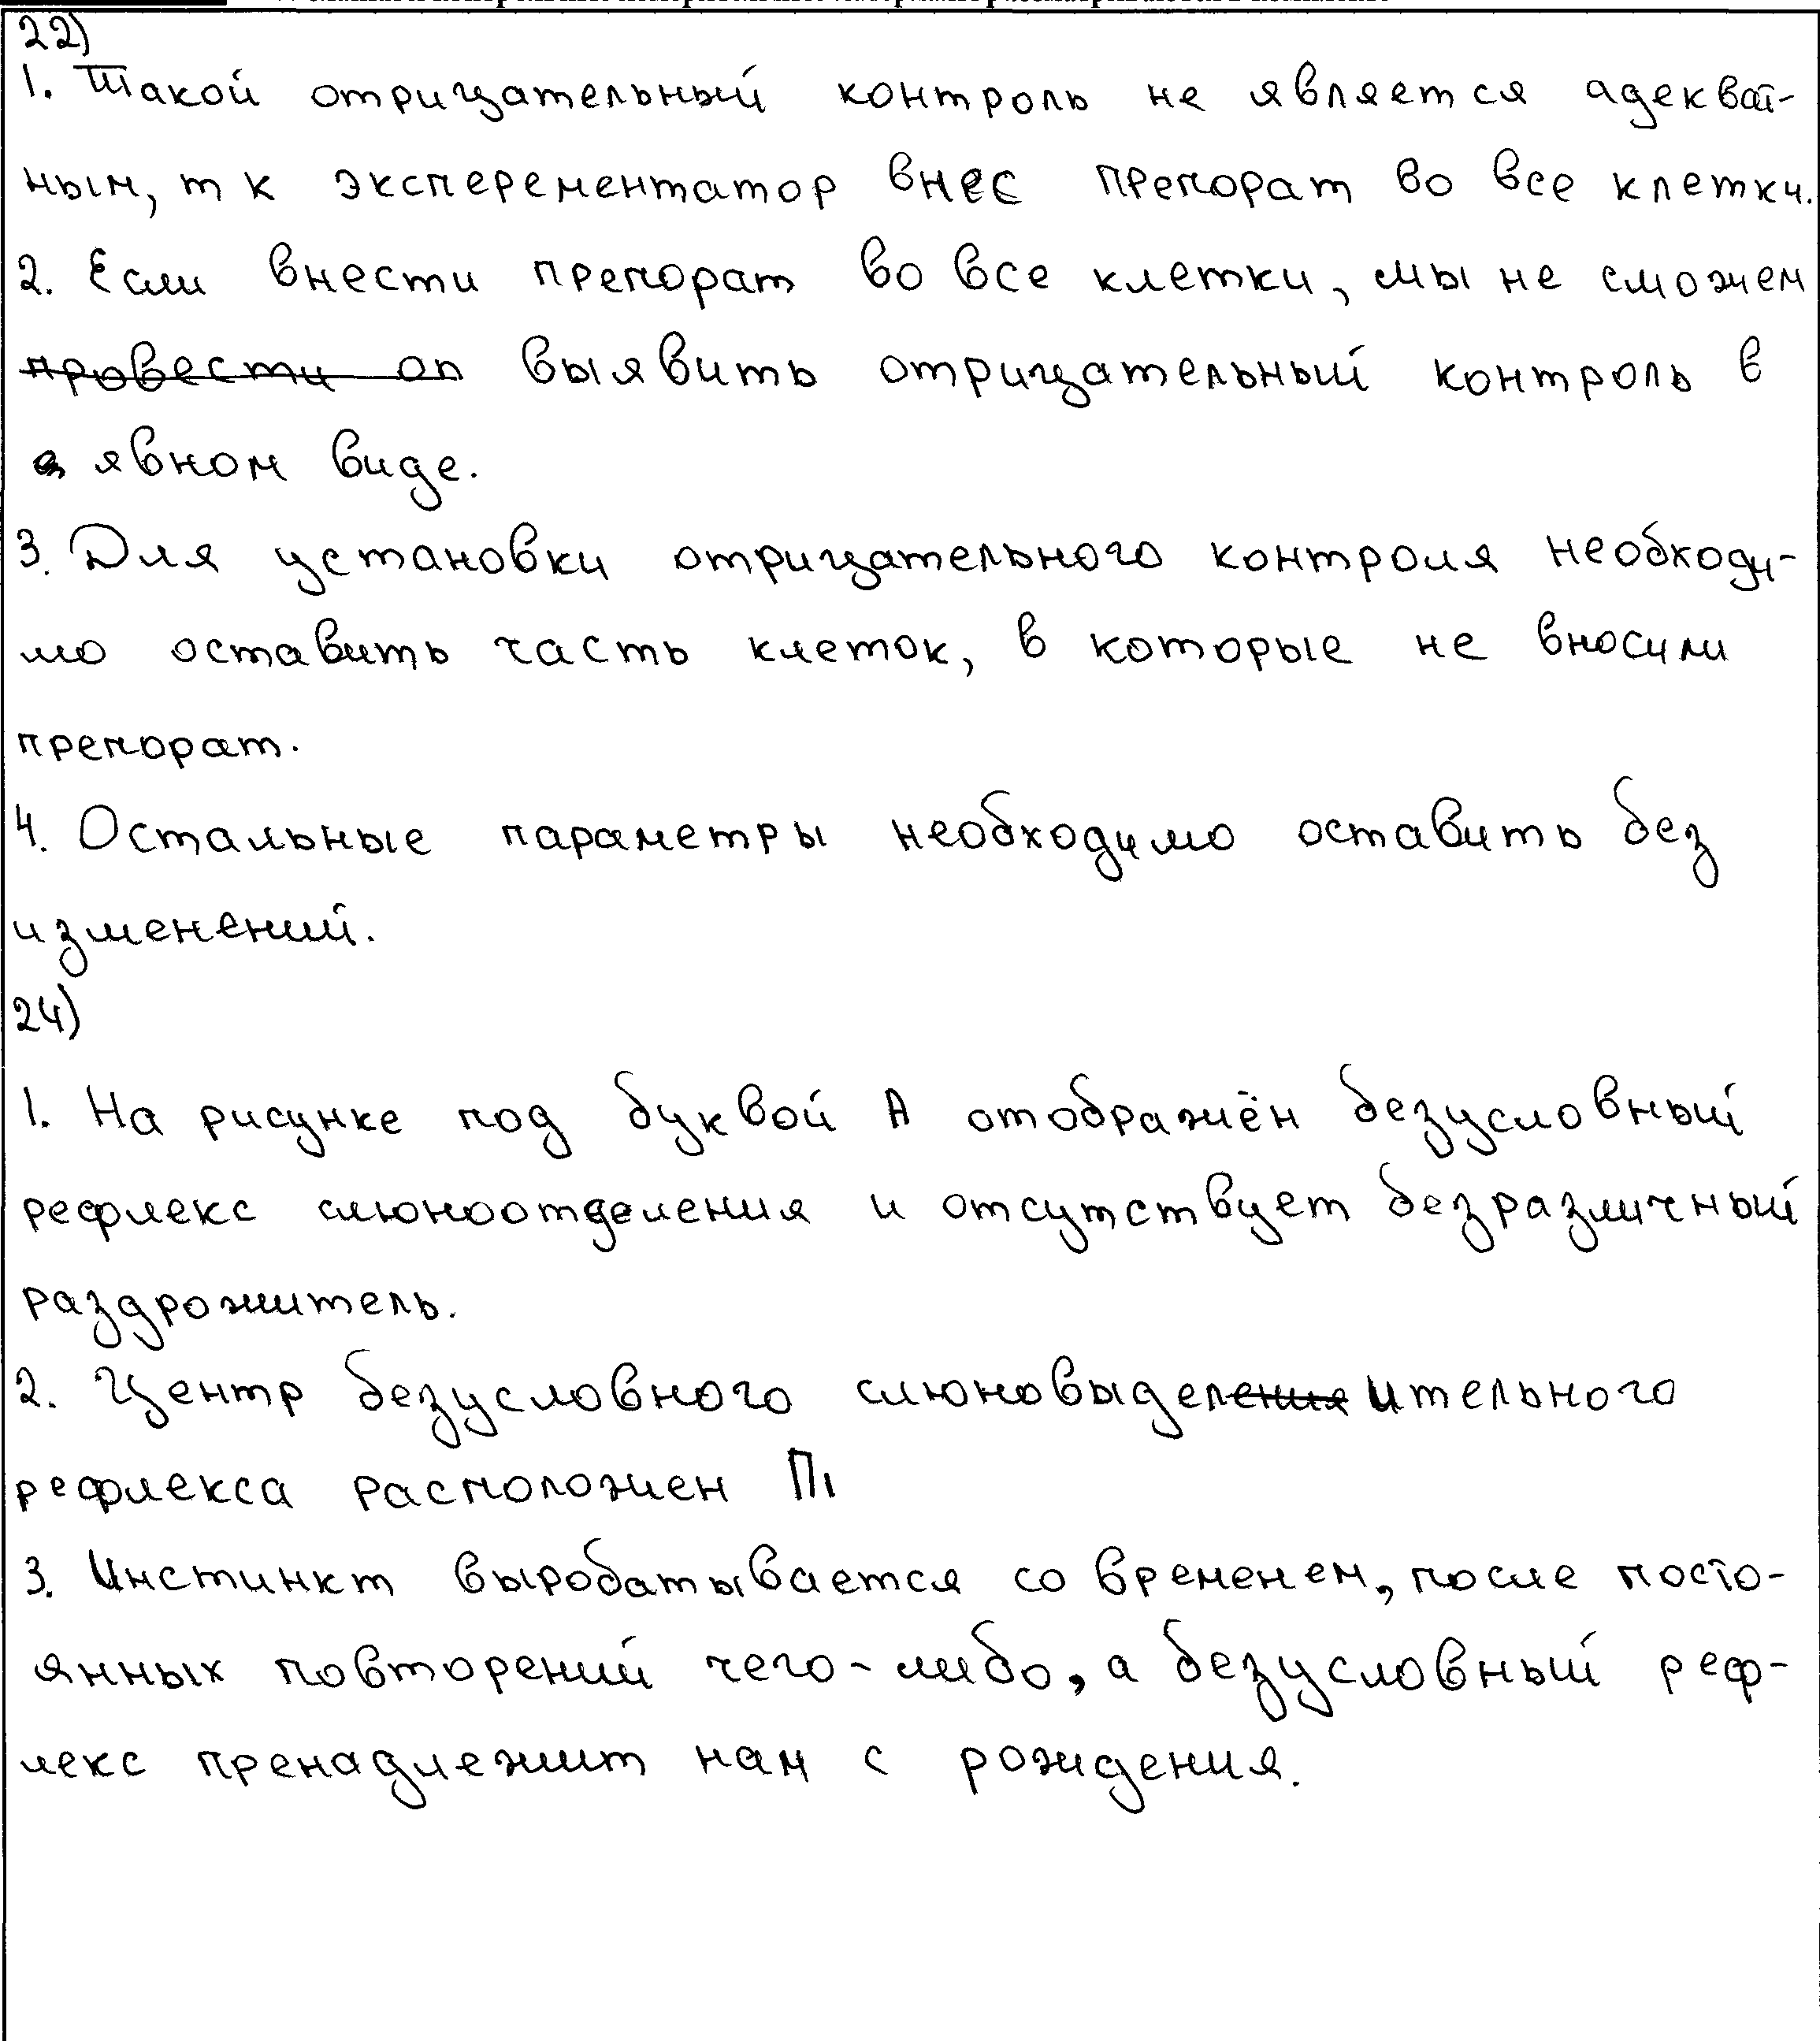 22)
1. Такой отрицательный контроль не является адекват-
ным, т к эксперементатор внес препорат во все клетки.
2. Если внести препорат во все клетки, мы не сможем
провести оп выявить отрицательный контроль в
явном виде.
3. Для установки отрицательного контроля необходи-
мо оставить часть клеток, в которые не вносили
препорат.
4. Остальные параметры необходимо оставить без
изменений.
24)
1. На рисунке под буквой А отображён безусловный
рефлекс слюноотделения и отсутствует безразличный
раздрожитель.
2. Центр безусловного слюновыделения ительного
рефлекса расположен П1
3. Инстинкт выробатывается со временем, после посто-
янных повторений чего-либо, а безусловный реф-
лекс пренадлежит нам с рождения.